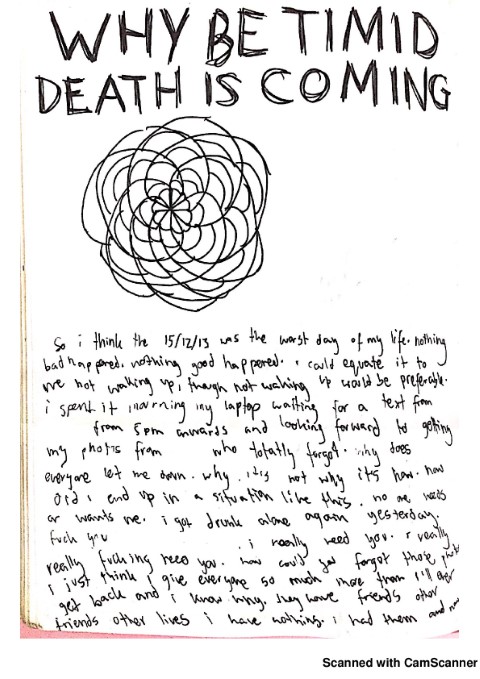 WHY BE TIMID
DEATH IS COMING
So i think the 15/12/13 was the worst day of my life. nothing
bad happened. nothing good happened. i could equate it to
me not waking up, though not waking up would be preferable.
i spent it my laptop waiting for a text from
from 5pm onwards and looking forward to getting
my photos from who totatly forgot. why does
everyone let me down. why. its not why its how. how
did i end up in a situation like this. no one needs
or wants me. i got drunk alone again yesterday.
fuck you . i really need you. i really
really fucking need you. how could you forgot those
I just think I give everyone so much more than I'll ever
get back and i know why. they have friends other
friends other lives i have nothing. i had them and
Scanned with CamScanner